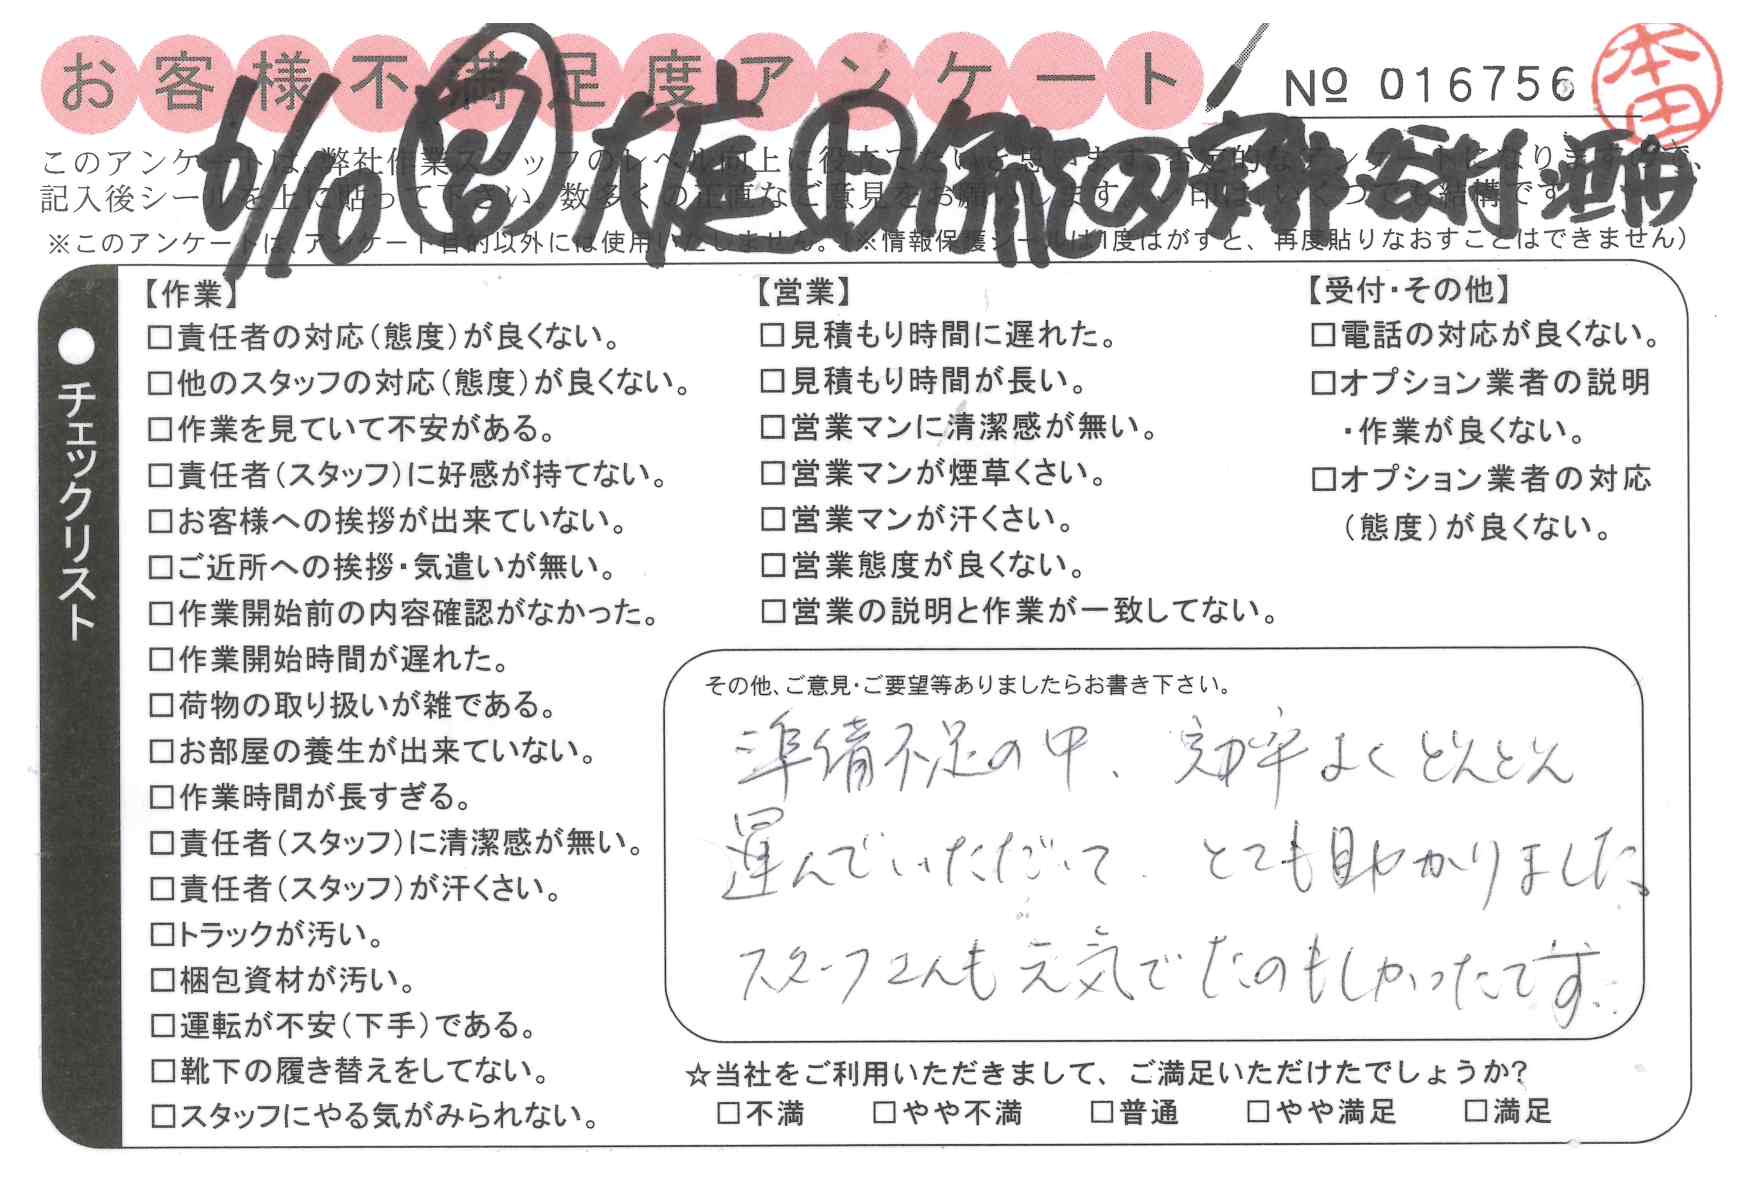 お客様不満足度アンケート
№ 016756
本田
このアンケートは、弊社作業スタッフのレベル向上に役立てたいと思います。否定的なアンケートになりますので、
記入後シールを上に貼って下さい。数多くの正直なご意見をお願いします。✓印は、いくつでも結構です。
※このアンケートは、アンケート目的以外には使用いたしません。(※情報保護シールは1度はがすと、再度貼りなおすことはできません)
●チェックリスト
【作業】
□責任者の対応(態度)が良くない。
□他のスタッフの対応(態度)が良くない。
□作業を見ていて不安がある。
□責任者(スタッフ)に好感が持てない。
□お客様への挨拶が出来ていない。
□ご近所への挨拶・気遣いが無い。
□作業開始前の内容確認がなかった。
□作業開始時間が遅れた。
□荷物の取り扱いが雑である。
□お部屋の養生が出来ていない。
□作業時間が長すぎる。
□責任者(スタッフ)に清潔感が無い。
□責任者(スタッフ)が汗くさい。
□トラックが汚い。
□梱包資材が汚い。
□運転が不安(下手)である。
□靴下の履き替えをしてない。
□スタッフにやる気がみられない。
【営業】
□見積もり時間に遅れた。
□見積もり時間が長い。
□営業マンに清潔感が無い。
□営業マンが煙草くさい。
□営業マンが汗くさい。
□営業態度が良くない。
□営業の説明と作業が一致してない。
【受付・その他】
□電話の対応が良くない。
□オプション業者の説明
・作業が良くない。
□オプション業者の対応
(態度)が良くない。
その他、ご意見・ご要望等ありましたらお書き下さい。
準備不足の中、効率よくどんどん
運んでいただいて、とても助かりました。
スタッフさんも元気でたのもしかったです。
☆当社をご利用いただきまして、ご満足いただけたでしょうか?
□不満 □やや不満 □普通 □やや満足 □満足